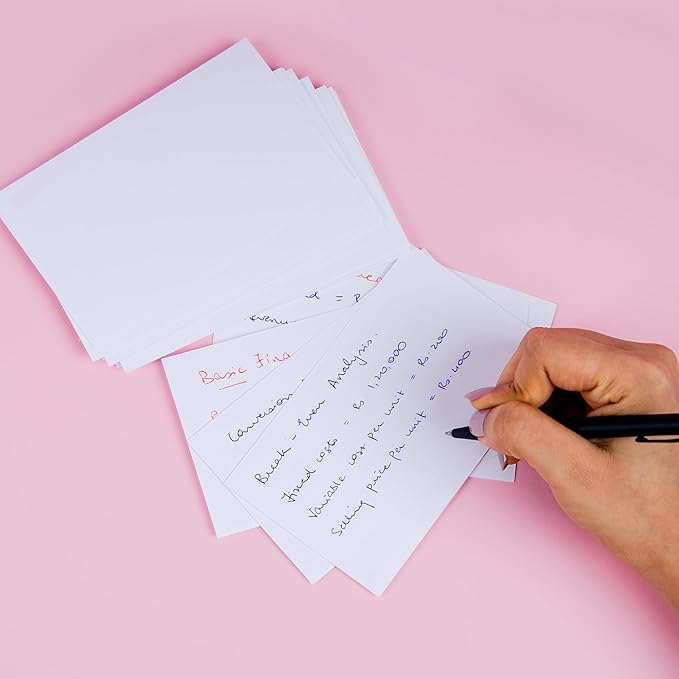 Break-Even Analysis.
Fixed costs = Rs 1,20,000
Variable cost per unit = Rs. 200
Selling price per unit = Rs. 400
Conversion
Basic Fina